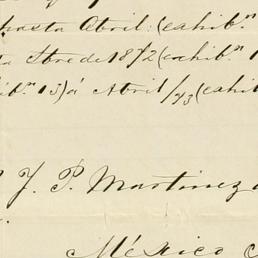 hasta Abril: (exhib.n
Sbre de 1872 (exhib.n 1
ib.n 13) á Abril/73 (exhib
J. P. Martinez
México